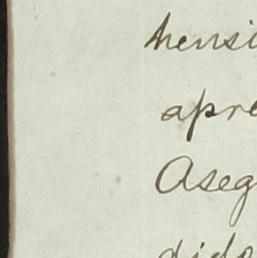 hensi
apre
Aseg
dido